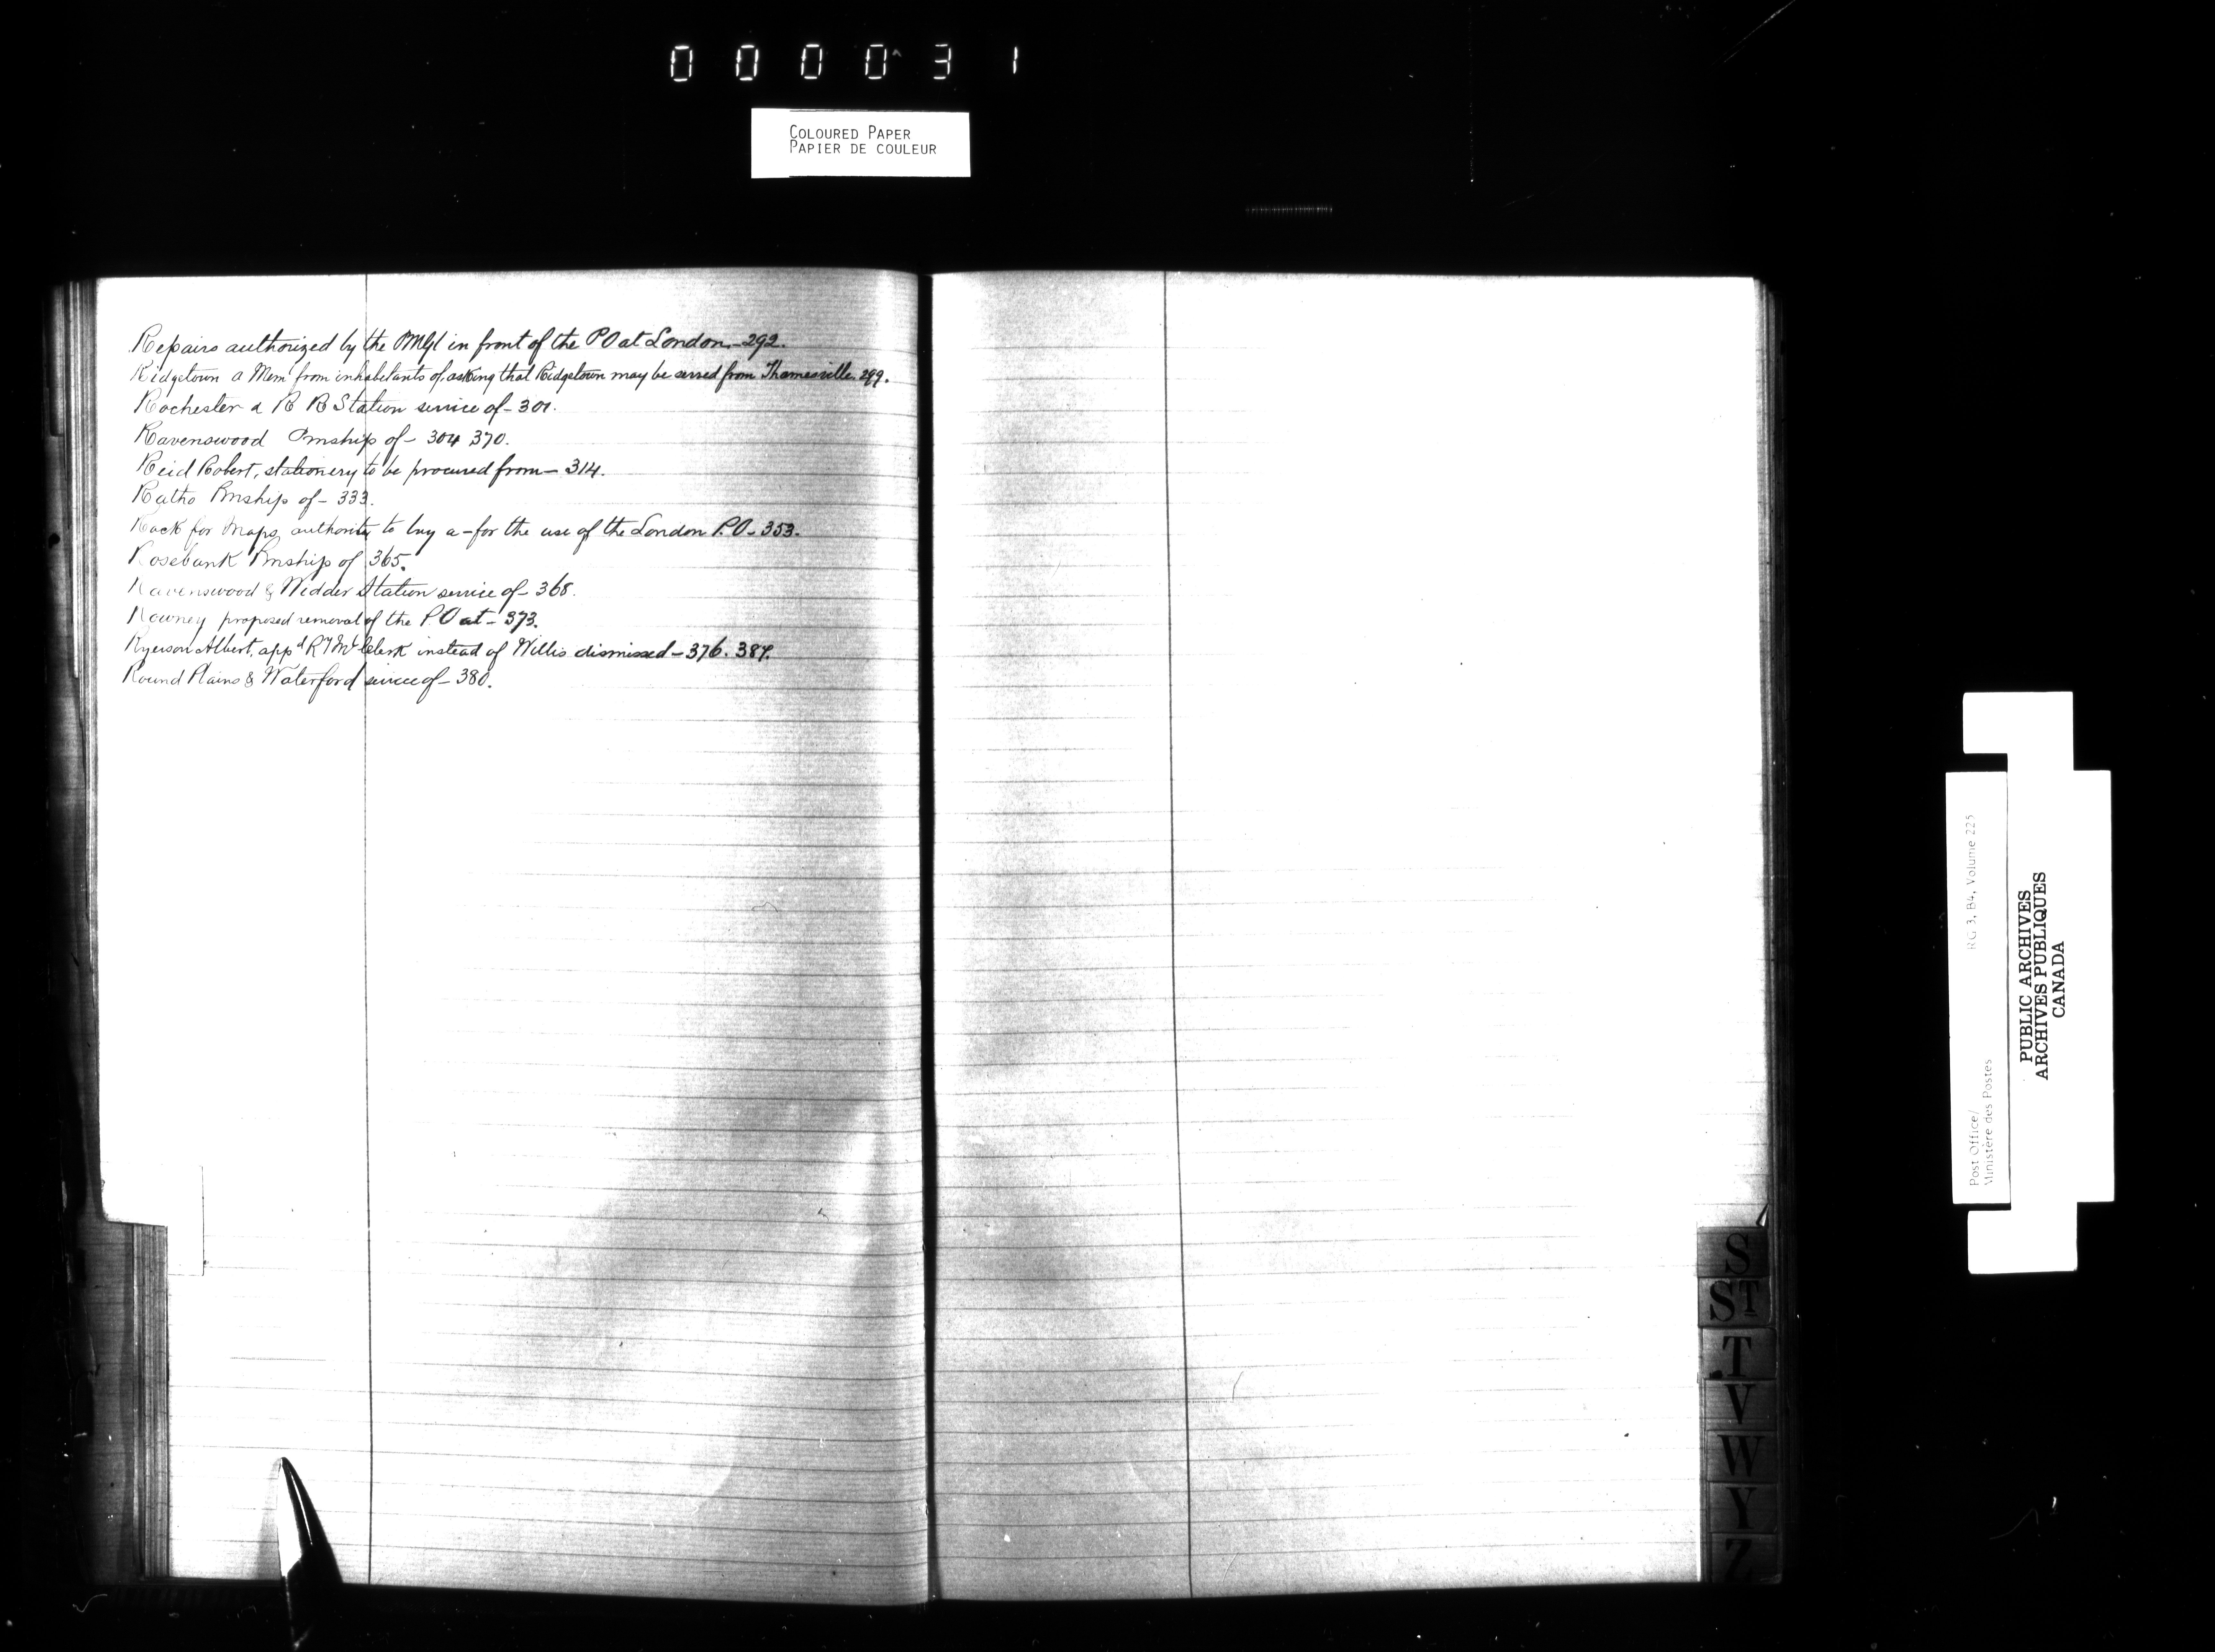 000031
COLOURED PAPER
PAPIER DE COULEUR
Repairs authorized by the PMGl in front of the PO at London - 292.
Ridgetown a Mem from inhabitants of, asking that Ridgetown may be served from Thamesville. 299.
Rochester & R R Station service of - 301.
Ravenswood Pmship of - 304 370.
Reid Robert, stationery to be procured from - 314.
Ratho Pmship of - 333.
Rack for Maps, authority to buy a - for the use of the London P.O - 353.
Rosebank Pmship of 365.
Ravenswood & Widder Station service of - 368.
Rowney proposed removal of the P O at - 373.
Ryerson Albert, appd Ry Ml Clerk instead of Willis dismissed - 376. 387.
Round Plains & Waterford service of - 380.
S
ST
T
V
W
Y
Z
Post Office/
Ministère des Postes
RG 3, B4, Volume 225
PUBLIC ARCHIVES
ARCHIVES PUBLIQUES
CANADA